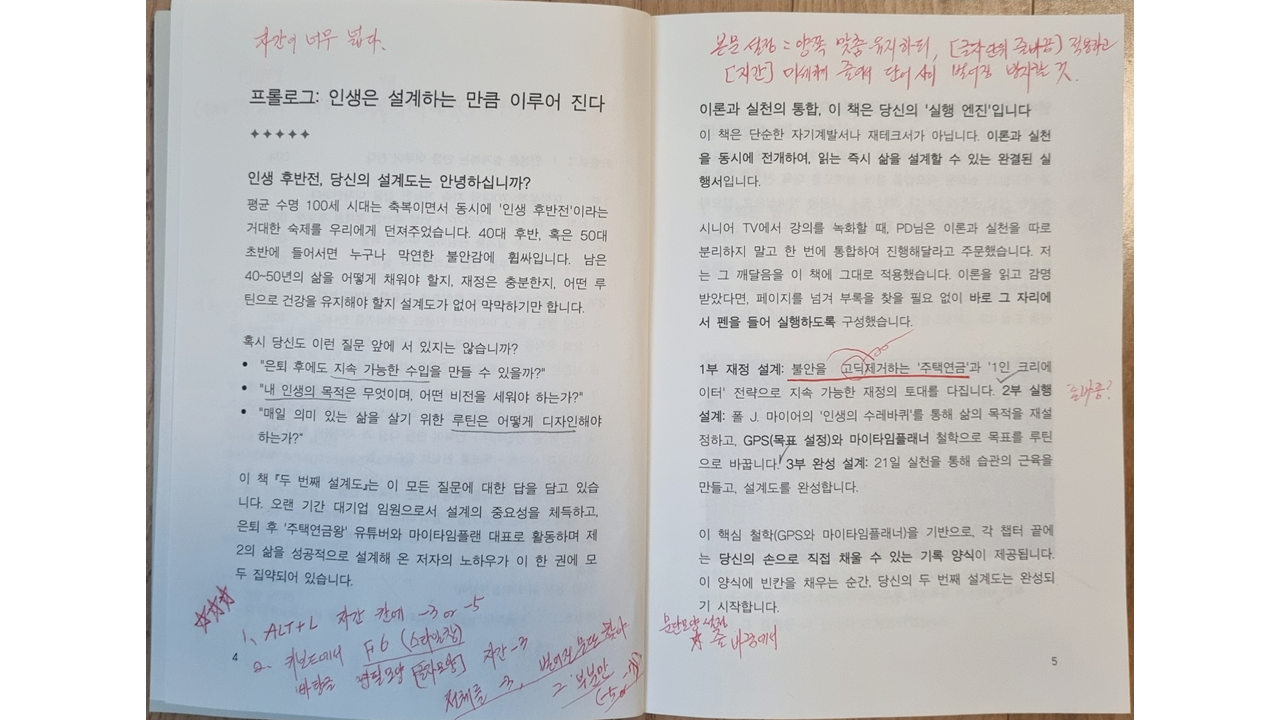 자간이 너무 넓다.
프롤로그: 인생은 설계하는 만큼 이루어 진다
✦✦✦✦✦
인생 후반전, 당신의 설계도는 안녕하십니까?
평균 수명 100세 시대는 축복이면서 동시에 '인생 후반전'이라는
거대한 숙제를 우리에게 던져주었습니다. 40대 후반, 혹은 50대
초반에 들어서면 누구나 막연한 불안감에 휩싸입니다. 남은
40~50년의 삶을 어떻게 채워야 할지, 재정은 충분한지, 어떤 루
틴으로 건강을 유지해야 할지 설계도가 없어 막막하기만 합니다.
혹시 당신도 이런 질문 앞에 서 있지는 않습니까?
• "은퇴 후에도 지속 가능한 수입을 만들 수 있을까?"
• "내 인생의 목적은 무엇이며, 어떤 비전을 세워야 하는가?"
• "매일 의미 있는 삶을 살기 위한 루틴은 어떻게 디자인해야
하는가?"
이 책 『두 번째 설계도』는 이 모든 질문에 대한 답을 담고 있습
니다. 오랜 기간 대기업 임원으로서 설계의 중요성을 체득하고,
은퇴 후 '주택연금왕' 유튜버와 마이타임플랜 대표로 활동하며 제
2의 삶을 성공적으로 설계해 온 저자의 노하우가 이 한 권에 모
두 집약되어 있습니다.
1, ALT+L 자간 칸에 -3 or -5
2. 키보드에서 F6 (스타일창)
바탕글 연필모양 [글자모양] 자간 -3
전체를 -3, 벌어진 문단 찾아
그 부분만
4
본문 설정 = 양쪽 맞춤 유지하되, [글자단위 줄바꿈] 적용하고
[자간] 미세하게 줄여서 단어 사이 벌어짐 방지할 것.
이론과 실천의 통합, 이 책은 당신의 '실행 엔진'입니다
이 책은 단순한 자기계발서나 재테크서가 아닙니다. 이론과 실천
을 동시에 전개하여, 읽는 즉시 삶을 설계할 수 있는 완결된 실
행서입니다.
시니어 TV에서 강의를 녹화할 때, PD님은 이론과 실천을 따로
분리하지 말고 한 번에 통합하여 진행해달라고 주문했습니다. 저
는 그 깨달음을 이 책에 그대로 적용했습니다. 이론을 읽고 감명
받았다면, 페이지를 넘겨 부록을 찾을 필요 없이 바로 그 자리에
서 펜을 들어 실행하도록 구성했습니다.
1부 재정 설계: 불안을 고딕제거하는 '주택연금'과 '1인 크리에
이터' 전략으로 지속 가능한 재정의 토대를 다집니다. 2부 실행
설계: 폴 J. 마이어의 '인생의 수레바퀴'를 통해 삶의 목적을 재설
정하고, GPS(목표 설정)와 마이타임플래너 철학으로 목표를 루틴
으로 바꿉니다. 3부 완성 설계: 21일 실천을 통해 습관의 근육을
만들고, 설계도를 완성합니다.
이 핵심 철학(GPS와 마이타임플래너)을 기반으로, 각 챕터 끝에
는 당신의 손으로 직접 채울 수 있는 기록 양식이 제공됩니다.
이 양식에 빈칸을 채우는 순간, 당신의 두 번째 설계도는 완성되
기 시작합니다.
문단모양 설정
줄 바꿈에서
5